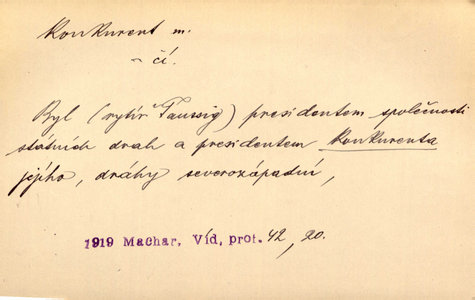 Konkurent m.
~ čí.
Byl (rytíř Taussig) presidentem společnosti
státních drah a presidentem konkurenta
jejího, dráhy severozápadní,
1919 Machar, Víd, prot. 42, 20.